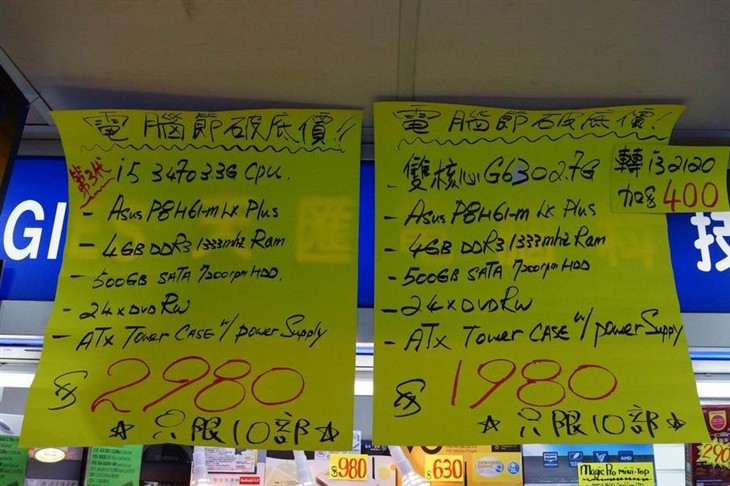 電腦節破底價!!
第3代
i5 3470 3.3G CPU.
- Asus P8H61-m LX Plus
- 4GB DDR3 1333mhz Ram
- 500GB SATA 7200rpm HDD.
- 24x DVD RW
- ATX Tower CASE w/ power Supply
$2980
☆只限10部☆
電腦節破底價!!
- 雙核心G630 2.7G
- Asus P8H61-m LX Plus
- 4GB DDR3 1333mhz Ram
- 500GB SATA 7200rpm HDD
- 24x DVD RW
- ATX Tower CASE w/ power Supply
$1980
☆只限10部☆
轉i3 2120
加$400
GI
匯
技
$980
$630
Magic-Pro mini-Top
290